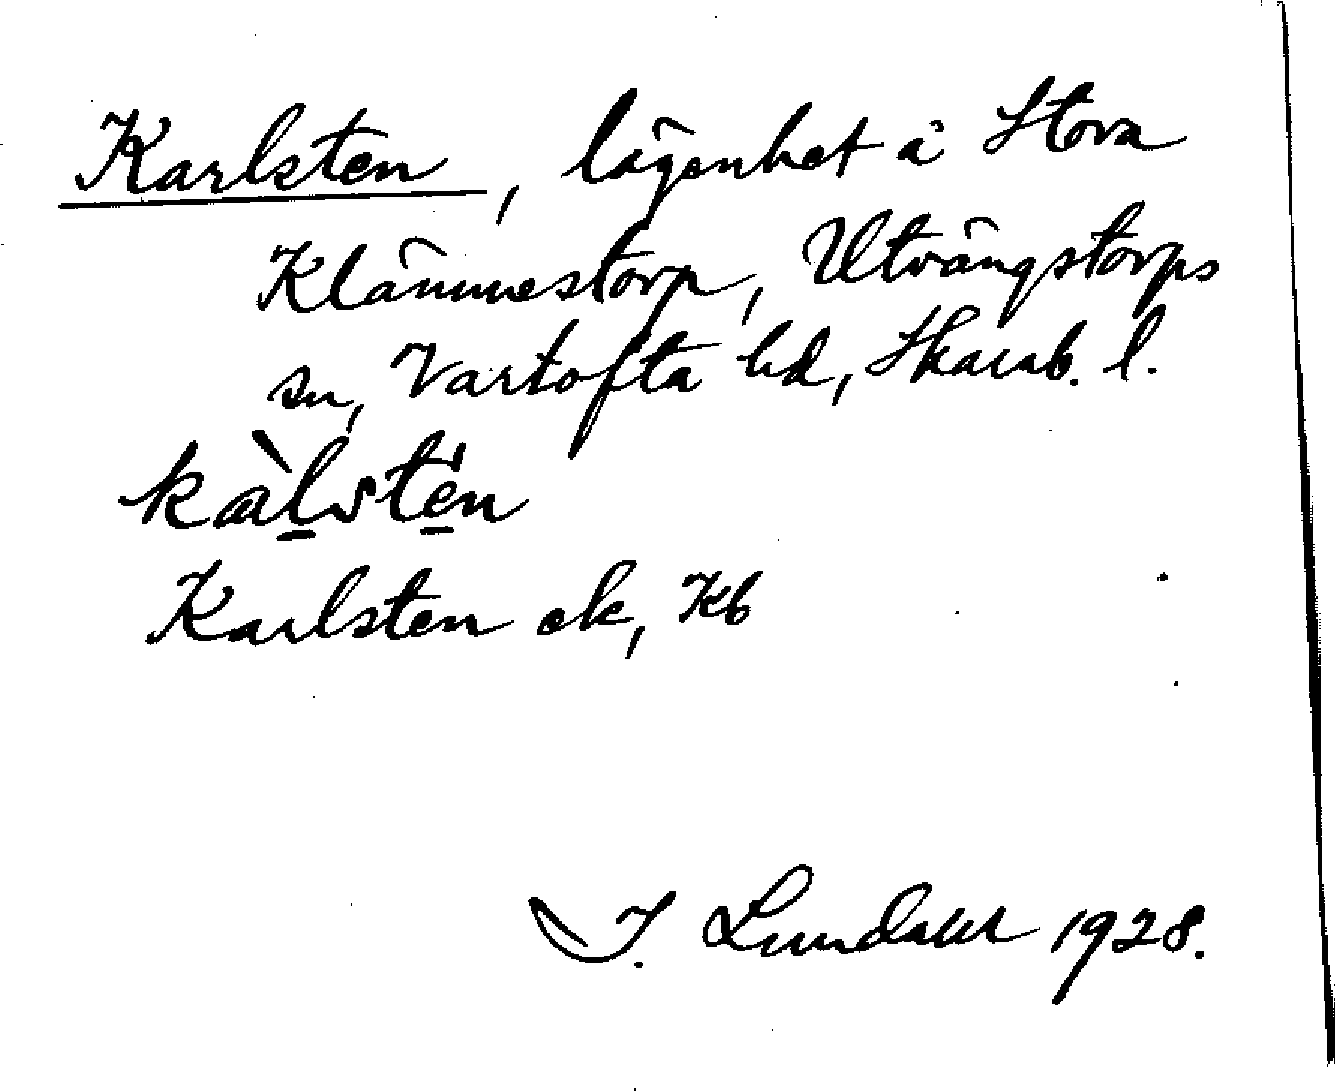 Karlsten, lägenhet å Stora
Klämmestorp, Utvängstorps
sn, Vartofta hd, Skarab. l.
kàlstén
Karlsten ek, Kb
I. Lundahl 1928.